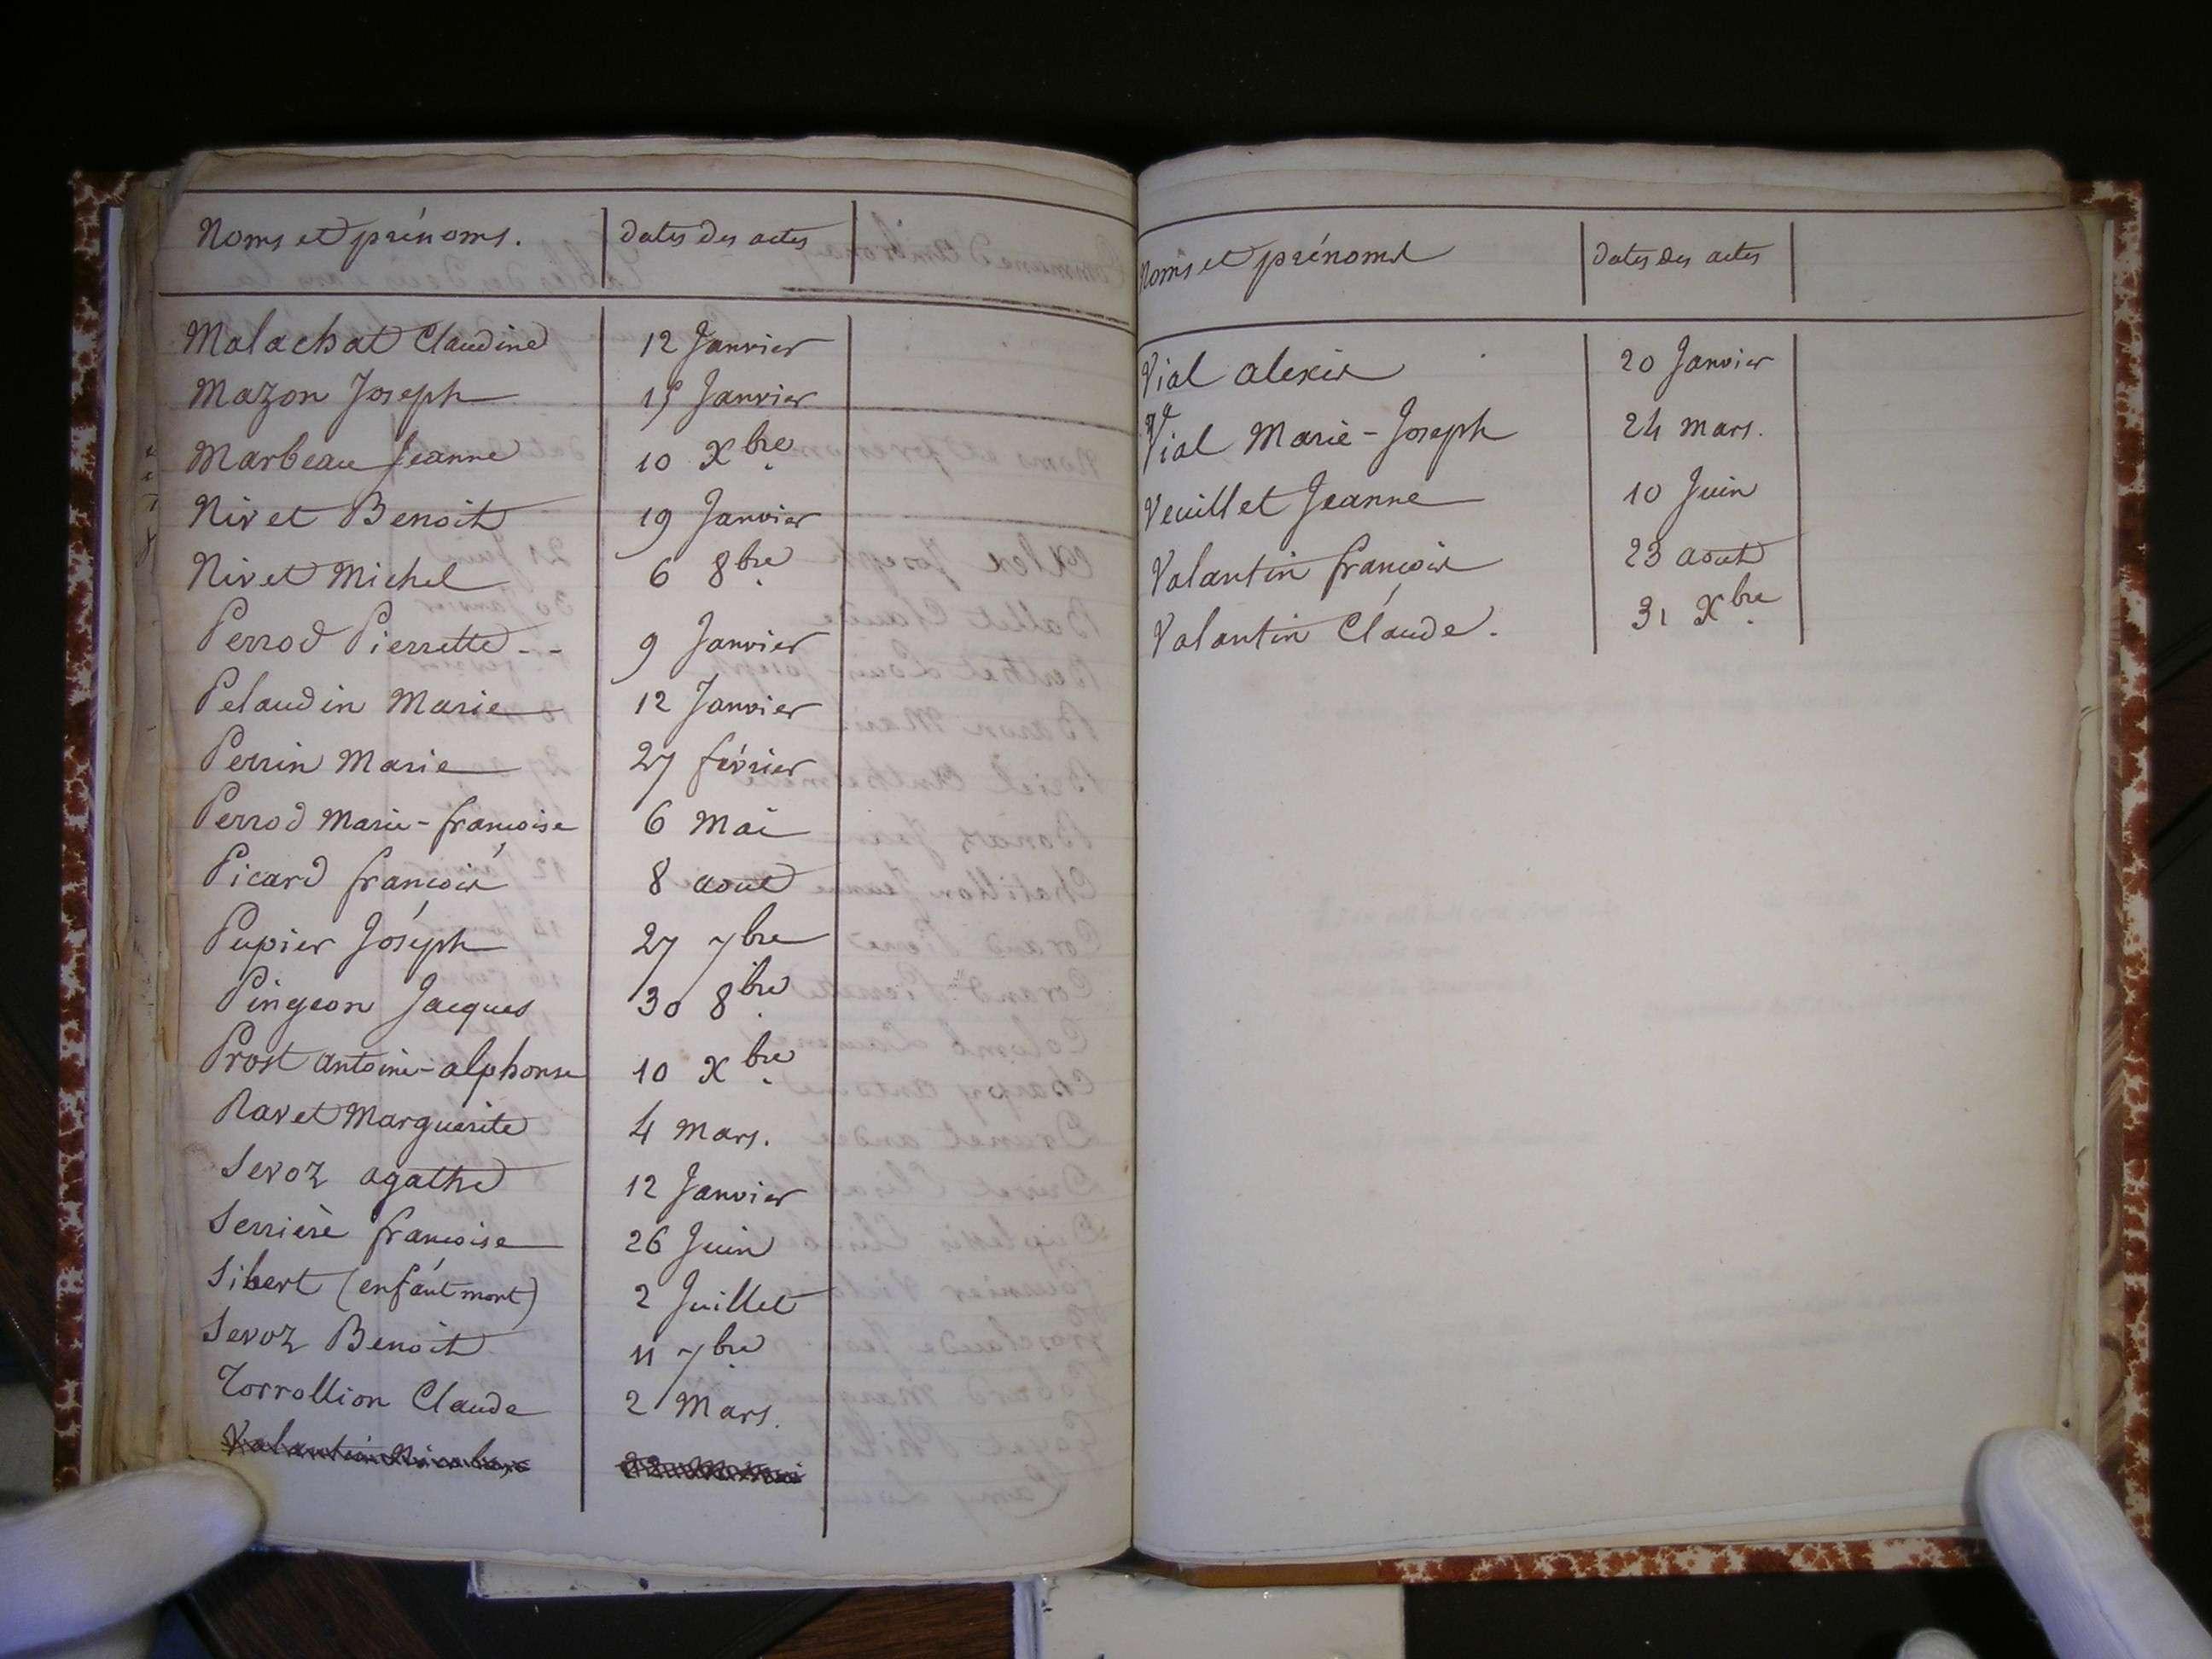 Noms et prénoms. dates des actes
Malachat Claudine 12 Janvier
Mazon Joseph 15 Janvier
Marbeau Jeanne 10 Xbre
Nivet Benoit 19 Janvier
Nivet Michel 6 8bre
Perrod Pierrette -- 9 Janvier
Pelaudin Marie 12 Janvier
Perrin Marie 27 février
Perrod Marie-françoise 6 Mai
Picard françois 8 aout
Pupier Joseph 27 7bre
Pingeon Jacques 30 8bre
Prost antoine-alphonse 10 Xbre
Ravet Marguerite 4 Mars.
Sevoz agathe 12 Janvier
Serrière françoise 26 Juin
Sibert (enfant mort) 2 Juillet
Sevoz Benoit 11 7bre
Torrollion Claude 2 Mars.
Noms et prénoms dates des actes
Vial alexis 20 Janvier
Vial Marie-Joseph 24 mars.
Veuillet Jeanne 10 Juin
Valantin françois 23 aout
Valantin Claude. 31 Xbre